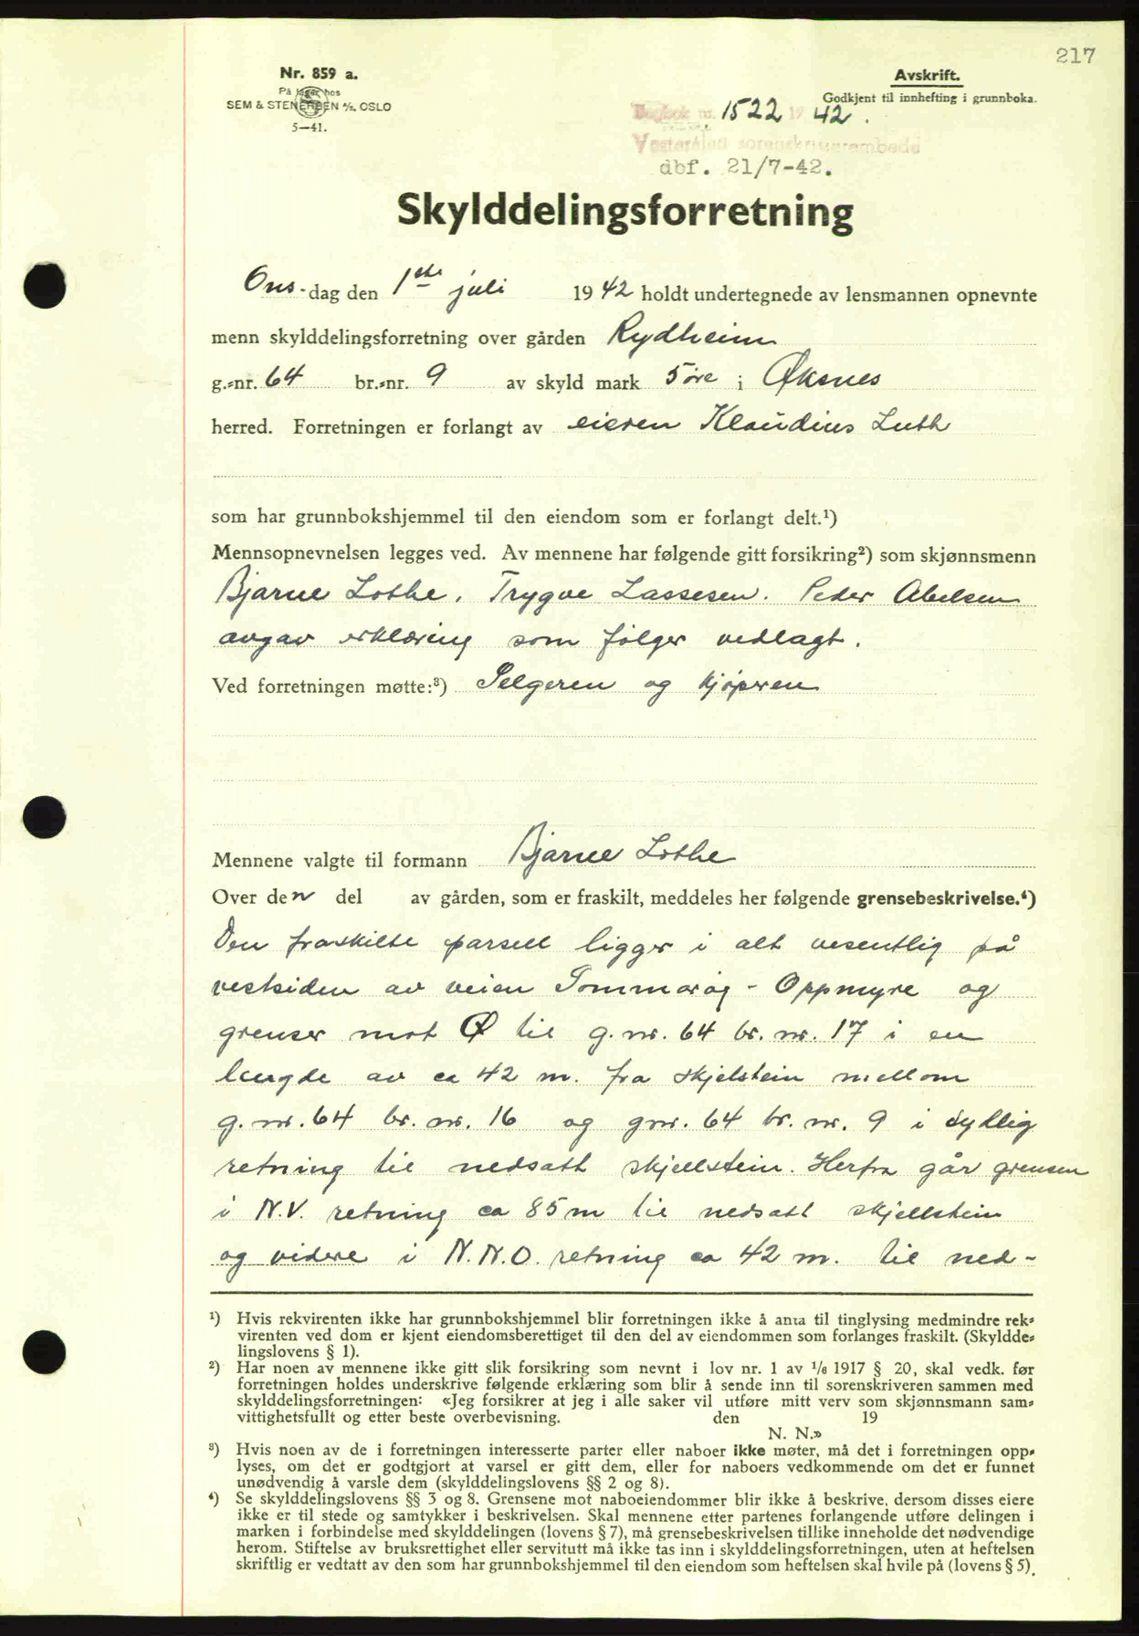 217
Nr. 859 a.
På lager hos
SEM & STENERSEN A/S. OSLO
5—41.
Avskrift.
Godkjent til innhefting i grunnboka.
Dagbok nr. 1522 19 42.
Vesterålen sorenskriverembede
dbf. 21/7-42.
Skylddelingsforretning
Ons-dag den 1ste juli 1942 holdt undertegnede av lensmannen opnevnte
menn skylddelingsforretning over gården Rydheim
g.-nr. 64 br.-nr. 9 av skyld mark 5 øre i Øksnes
herred. Forretningen er forlangt av eieren Klaudius Luth
som har grunnbokshjemmel til den eiendom som er forlangt delt.¹)
Mennsopnevnelsen legges ved. Av mennene har følgende gitt forsikring²) som skjønnsmenn
Bjarne Lothe. Trygve Lassesen. Peder Abelsen
avgav erklæring som følger vedlagt.
Ved forretningen møtte:³) Selgeren og kjøperen
Mennene valgte til formann Bjarne Lothe
Over den del av gården, som er fraskilt, meddeles her følgende grensebeskrivelse.⁴)
Den fraskilte parsell ligger i alt vesentlig på
vestsiden av veien Sommarøy - Oppmyre og
grenser mot Ø til g.nr. 64 br. nr. 17 i en
lengde av ca 42 m. fra skjelstein mellom
g.nr. 64 br. nr. 16 og gnr. 64 br. nr. 9 i sydlig
retning til nedsatt skjellstein. Herfra går grensen
i N.V. retning ca 85 m til nedsatt skjellstein
og videre i N.N.O. retning ca 42 m. til ned-
¹) Hvis rekvirenten ikke har grunnbokshjemmel blir forretningen ikke å anta til tinglysing medmindre rek-
virenten ved dom er kjent eiendomsberettiget til den del av eiendommen som forlanges fraskilt. (Skyldde-
lingslovens § 1).
²) Har noen av mennene ikke gitt slik forsikring som nevnt i lov nr. 1 av 1/6 1917 § 20, skal vedk. før
forretningen holdes underskrive følgende erklæring som blir å sende inn til sorenskriveren sammen med
skylddelingsforretningen: «Jeg forsikrer at jeg i alle saker vil utføre mitt verv som skjønnsmann sam-
vittighetsfullt og etter beste overbevisning. den 19
N. N.»
³) Hvis noen av de i forretningen interesserte parter eller naboer ikke møter, må det i forretningen opp-
lyses, om det er godtgjort at varsel er gitt dem, eller for naboers vedkommende om det er funnet
unødvendig å varsle dem (skylddelingslovens §§ 2 og 8).
⁴) Se skylddelingslovens §§ 3 og 8. Grensene mot naboeiendommer blir ikke å beskrive, dersom disses eiere
ikke er til stede og samtykker i beskrivelsen. Skal mennene etter partenes forlangende utføre delingen i
marken i forbindelse med skylddelingen (lovens § 7), må grensebeskrivelsen tillike inneholde det nødvendige
herom. Stiftelse av bruksrettighet eller servitutt må ikke tas inn i skylddelingsforretningen, uten at heftelsen
skriftlig er vedtatt av den som har grunnbokshjemmel til den eiendom som heftelsen skal hvile på (lovens § 5).